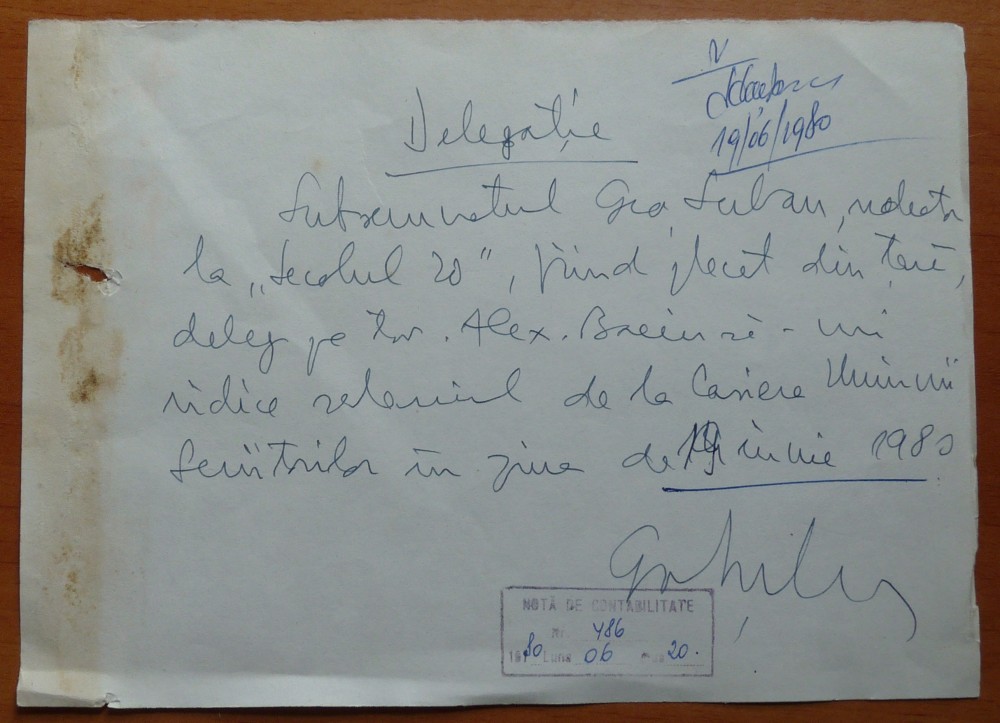 V
19/06/1980
Delegație
Subsemnatul Geo Șerban, redactor
la „Secolul 20", fiind plecat din țară,
deleg pe tov. Alex. Baciu să-mi
ridice salariul de la Casieria Uniunii
Scriitorilor în ziua de 19 iunie 1980
NOTĂ DE CONTABILITATE
Nr. 486
1980 Luna 06 Ziua 20.